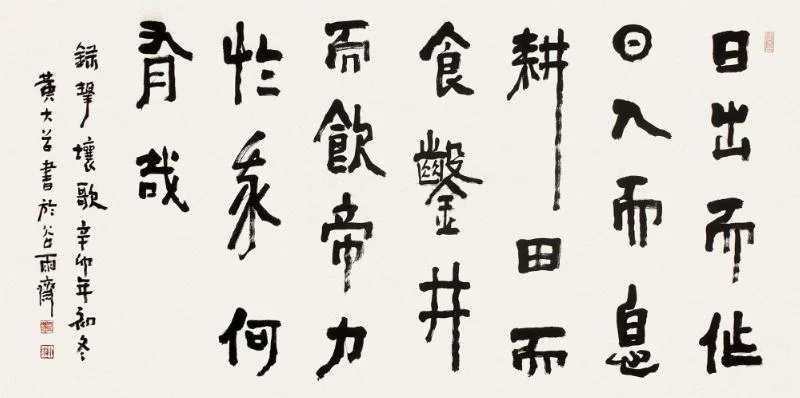 日出而作
日入而息
耕田而
食鑿井
而飲帝力
於我何
有哉
錄擊壤歌辛卯年初冬
黃大書於谷雨齋